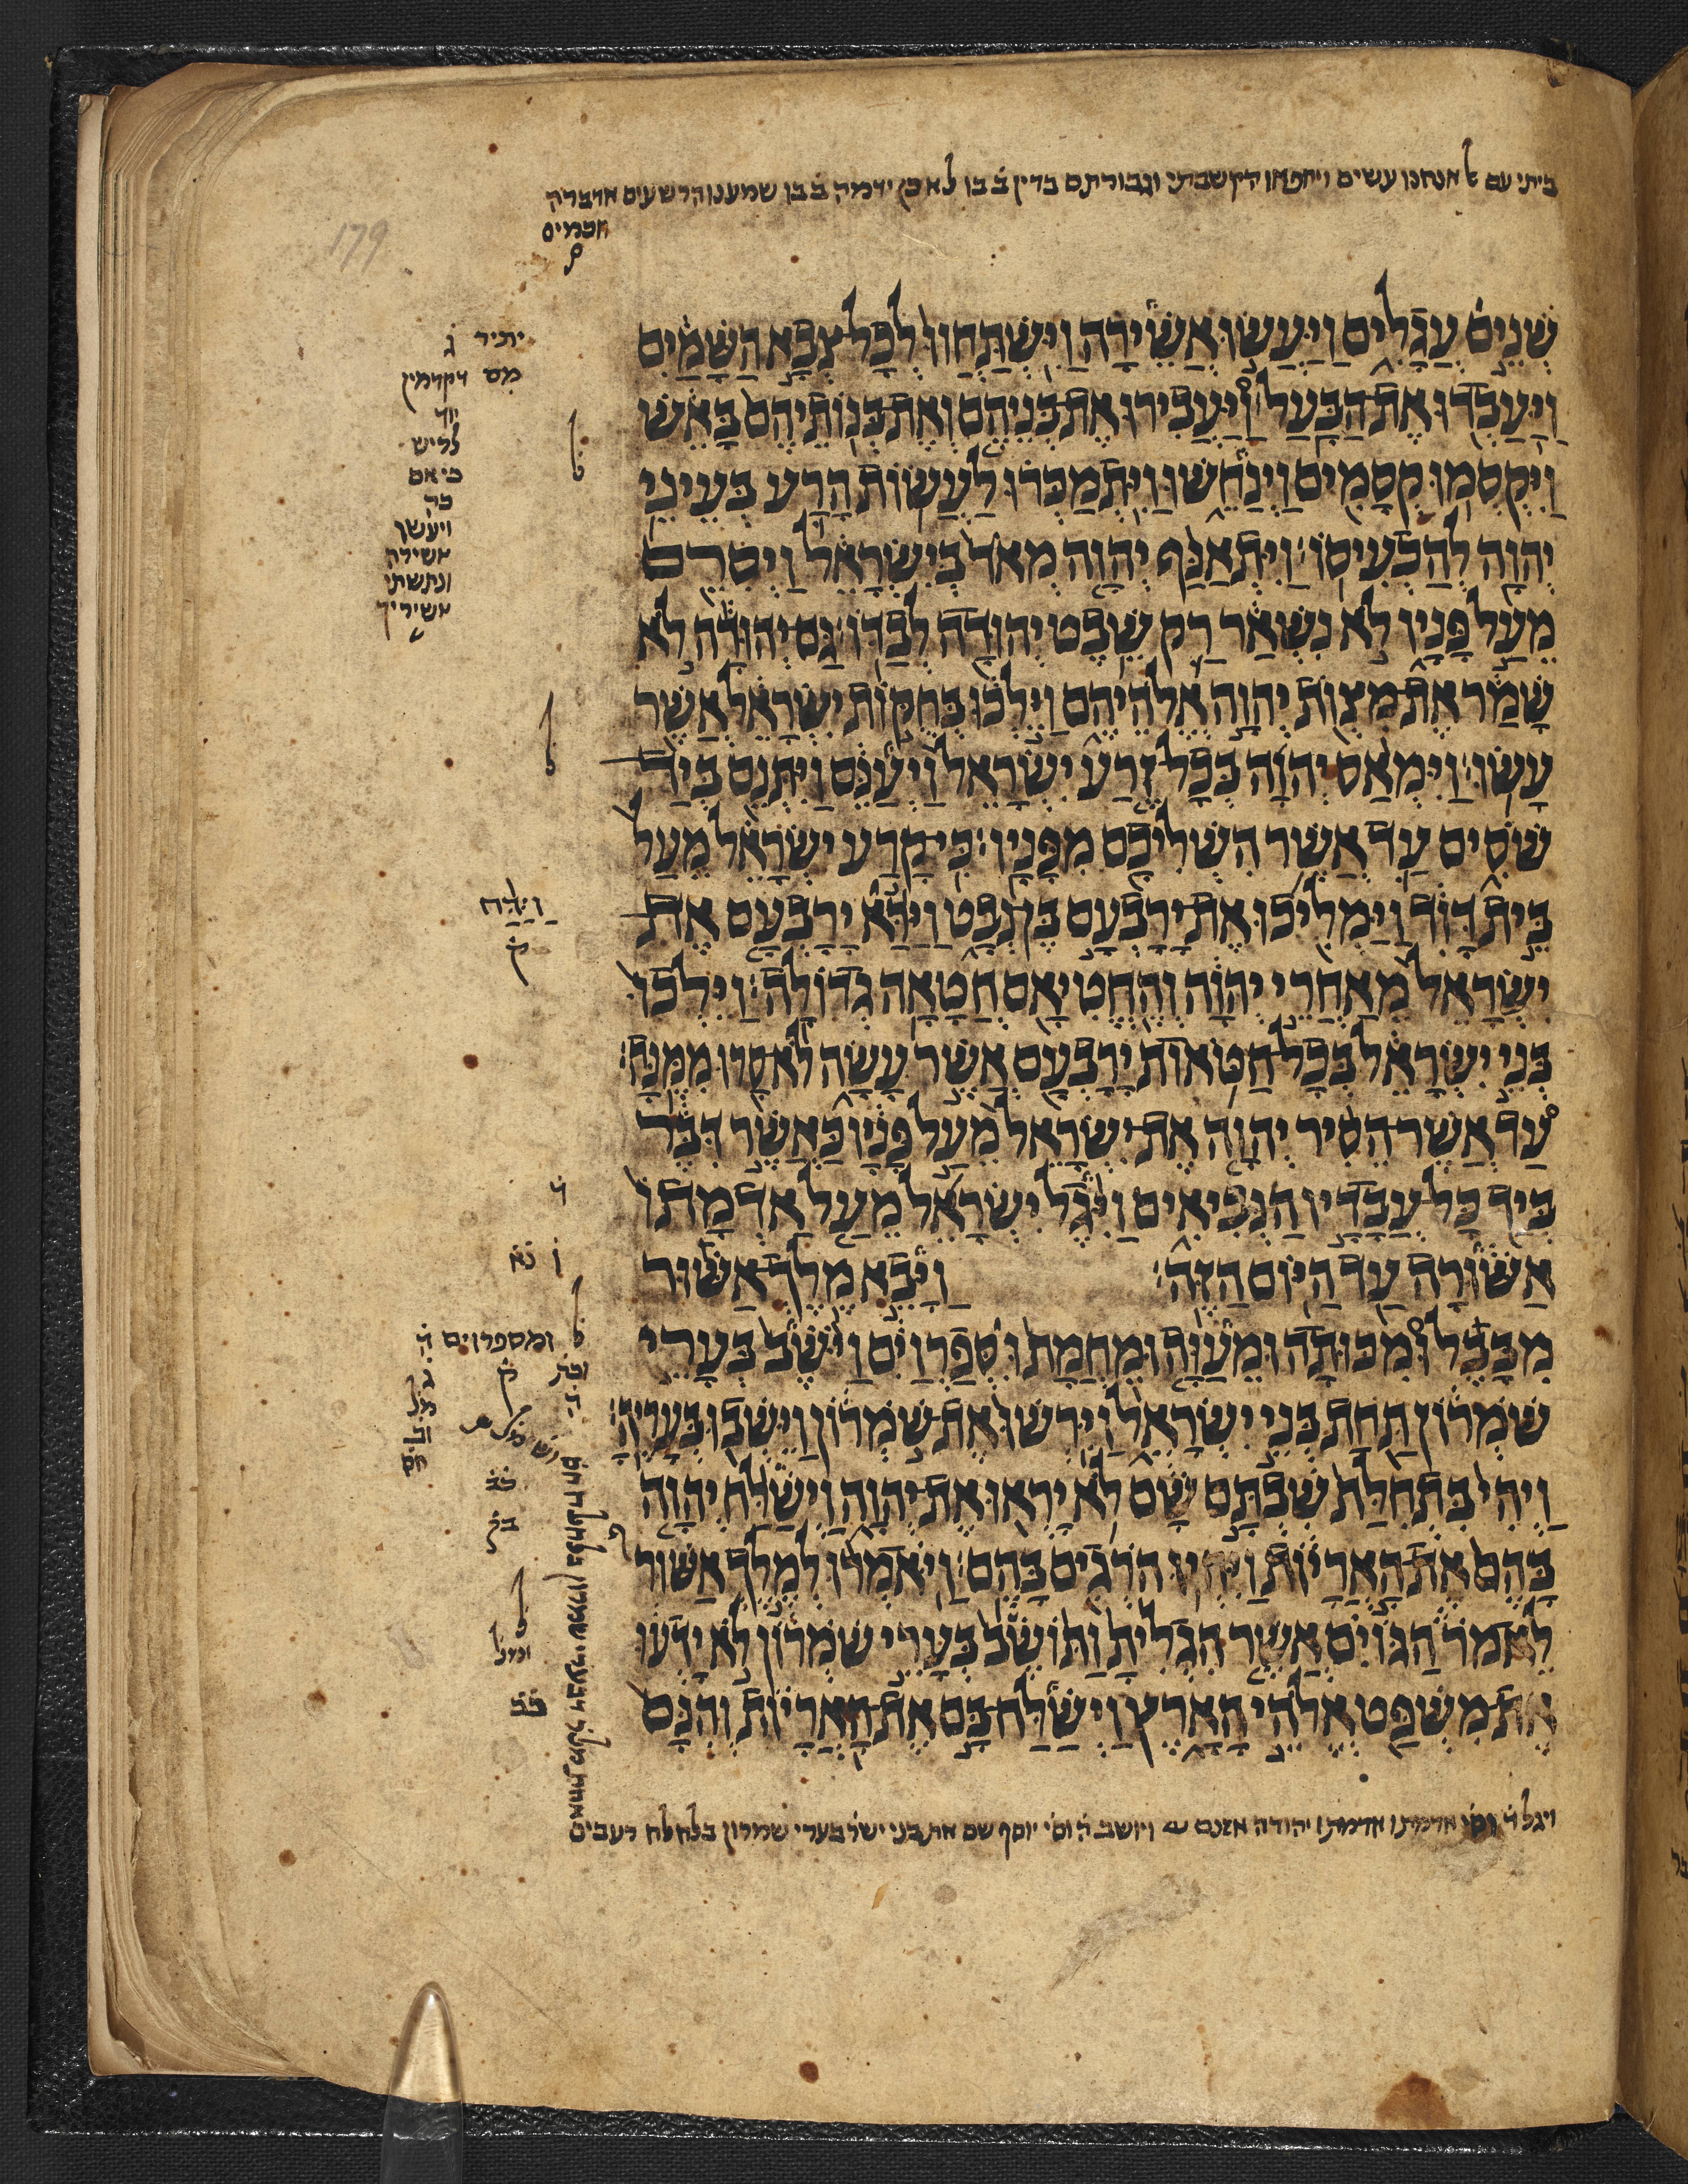 ביתי עם אנחנו עשים ויחפאו הקשבתי וגבורתם בדין ב̇ בו לא כן ידמה ב̇ בו שמענו הרשעים אדברה
חכמים
179
שְׁנֵים עֲגָלִים וַיַּעֲשׂוּ אֲשֵׁירָה וַיִּשְׁתַּחֲווּ לְכָל צְבָא הַשָּׁמַיִם
וַיַּעַבְדוּ אֶת הַבָּעַל׃ וַיַּעֲבִירוּ אֶת בְּנֵיהֶם וְאֶת בְּנוֹתֵיהֶם בָּאֵשׁ
וַיִּקְסְמוּ קְסָמִים וַיְנַחֵשׁוּ וַיִּתְמַכְּרוּ לַעֲשׂוֹת הָרַע בְּעֵינֵי
יְהוָה לְהַכְעִיסוֹ׃ וַיִּתְאַנַּף יְהוָה מְאֹד בְּיִשְׂרָאֵל וַיְסִרֵם
מֵעַל פָּנָיו לֹא נִשְׁאַר רַק שֵׁבֶט יְהוּדָה לְבַדּוֹ׃ גַּם יְהוּדָה לֹא
שָׁמַר אֶת מִצְוֹת יְהוָה אֱלֹהֵיהֶם וַיֵּלְכוּ בְּחֻקּוֹת יִשְׂרָאֵל אֲשֶׁר
עָשׂוּ׃ וַיִּמְאַס יְהוָה בְּכָל זֶרַע יִשְׂרָאֵל וַיְעַנֵּם וַיִּתְּנֵם בְּיַד
שֹׁסִים עַד אֲשֶׁר הִשְׁלִיכָם מִפָּנָיו׃ כִּי קָרַע יִשְׂרָאֵל מֵעַל
בֵּית דָּוִד וַיַּמְלִיכוּ אֶת יָרָבְעָם בֶּן נְבָט וַיַּדַּא יָרָבְעָם אֶת
יִשְׂרָאֵל מֵאַחֲרֵי יְהוָה וְהֶחֱטִיאָם חֲטָאָה גְדוֹלָה׃ וַיֵּלְכוּ
בְּנֵי יִשְׂרָאֵל בְּכָל חַטֹּאות יָרָבְעָם אֲשֶׁר עָשָׂה לֹא סָרוּ מִמֶּנָּה׃
עַד אֲשֶׁר הֵסִיר יְהוָה אֶת יִשְׂרָאֵל מֵעַל פָּנָיו כַּאֲשֶׁר דִּבֶּר
בְּיַד כָּל עֲבָדָיו הַנְּבִיאִים וַיִּגֶל יִשְׂרָאֵל מֵעַל אַדְמָתוֹ
אַשּׁוּרָה עַד הַיּוֹם הַזֶּה׃ וַיָּבֵא מֶלֶךְ אַשּׁוּר
מִבָּבֶל וּמִכּוּתָה וּמֵעַוָּה וּמֵחֲמָת וּסְפַרְוַיִם וַיֹּשֶׁב בְּעָרֵי
שֹׁמְרוֹן תַּחַת בְּנֵי יִשְׂרָאֵל וַיִּרְשׁוּ אֶת שֹׁמְרוֹן וַיֵּשְׁבוּ בְּעָרֶיהָ׃
וַיְהִי בִּתְחִלַּת שִׁבְתָּם שָׁם לֹא יָרְאוּ אֶת יְהוָה וַיְשַׁלַּח יְהוָה
בָּהֶם אֶת הָאֲרָיוֹת וַיִּהְיוּ הֹרְגִים בָּהֶם׃ וַיֹּאמְרוּ לְמֶלֶךְ אַשּׁוּר
לֵאמֹר הַגּוֹיִם אֲשֶׁר הִגְלִיתָ וַתּוֹשֶׁב בְּעָרֵי שֹׁמְרוֹן לֹא יָדְעוּ
אֶת מִשְׁפַּט אֱלֹהֵי הָאָרֶץ וַיְשַׁלַּח בָּם אֶת הָאֲרָיוֹת וְהִנָּם
יתיר ג̇
מס דקדמין
לליש
כי אם
ויעשן
אשירה
ונתשתי
אשיריך
וַיַּדַּח
ק̇
ד̇
ומספרוים ה̇
ק̇
ב̇ב̇
ויגל ד̇ וס̇י אדמתו אדמתו יהודה אזנם ויושב ה̇ וס̇י יוסף שם את בני ישר בערי שמרון בלחלח רעבים